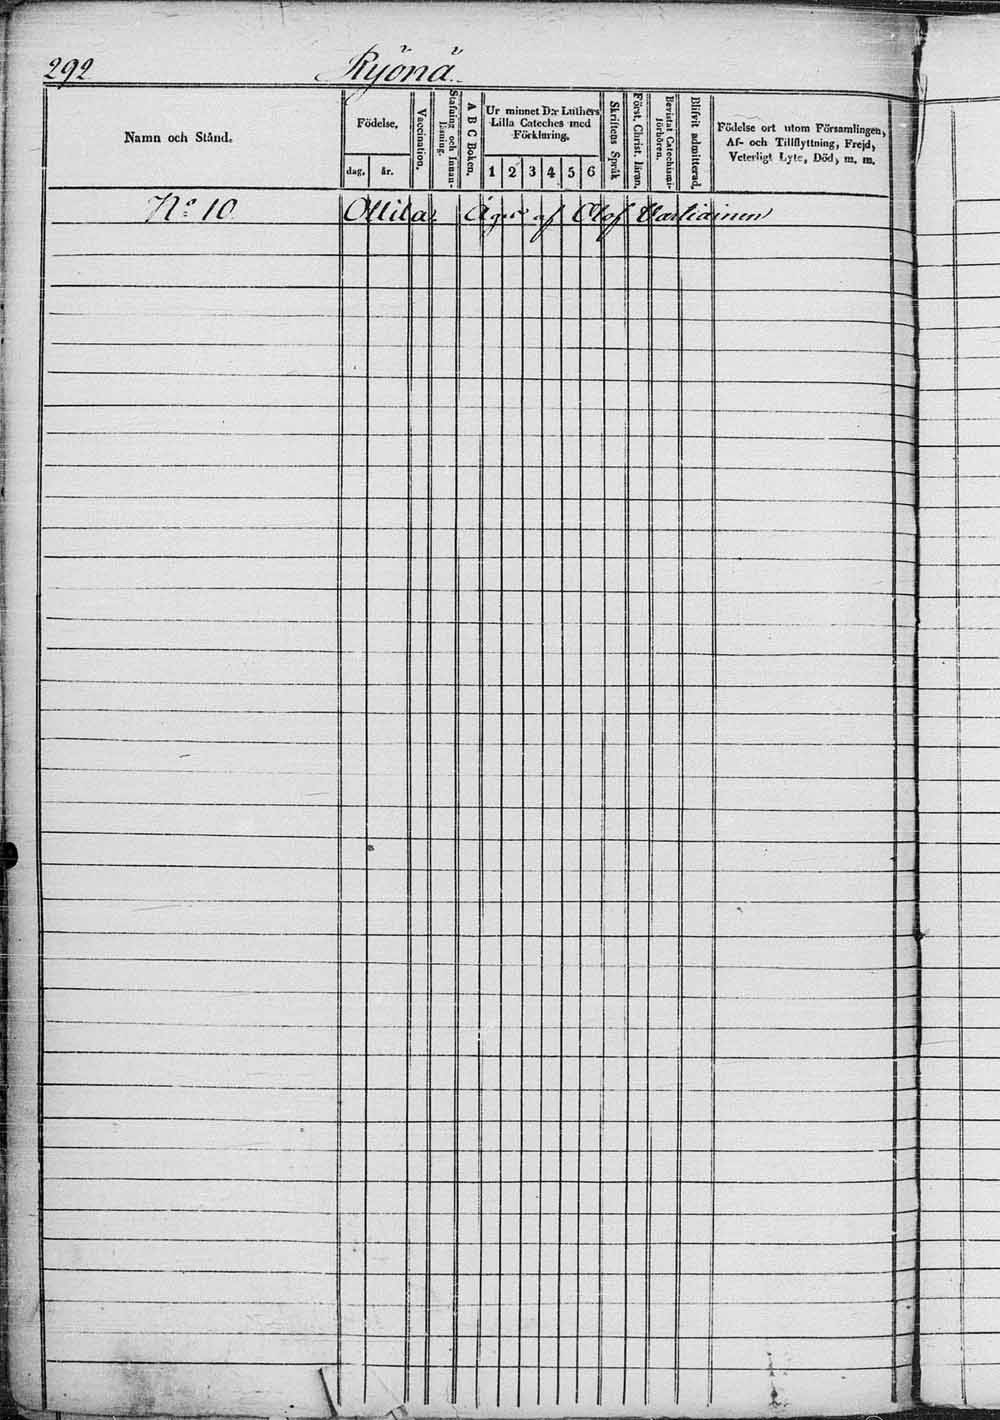 292 Ryönä.
Namn och Stånd.
Födelse,
dag, år.
Vaccination.
Stafning och Innan-
läsning.
A B C Boken.
Ur minnet D:r Luthers
Lilla Cateches med
Förklaring.
1 2 3 4 5 6
Skriftens Språk
Först. Christ. läran.
Bevistat Catechismi-
förhören.
Blifvit admitterad.
Födelse ort utom Församlingen,
Af- och Tillflyttning, Frejd,
Veterligt Lyte, Död, m. m.
No 10 Ollila. Äges af Olof Vartiainen